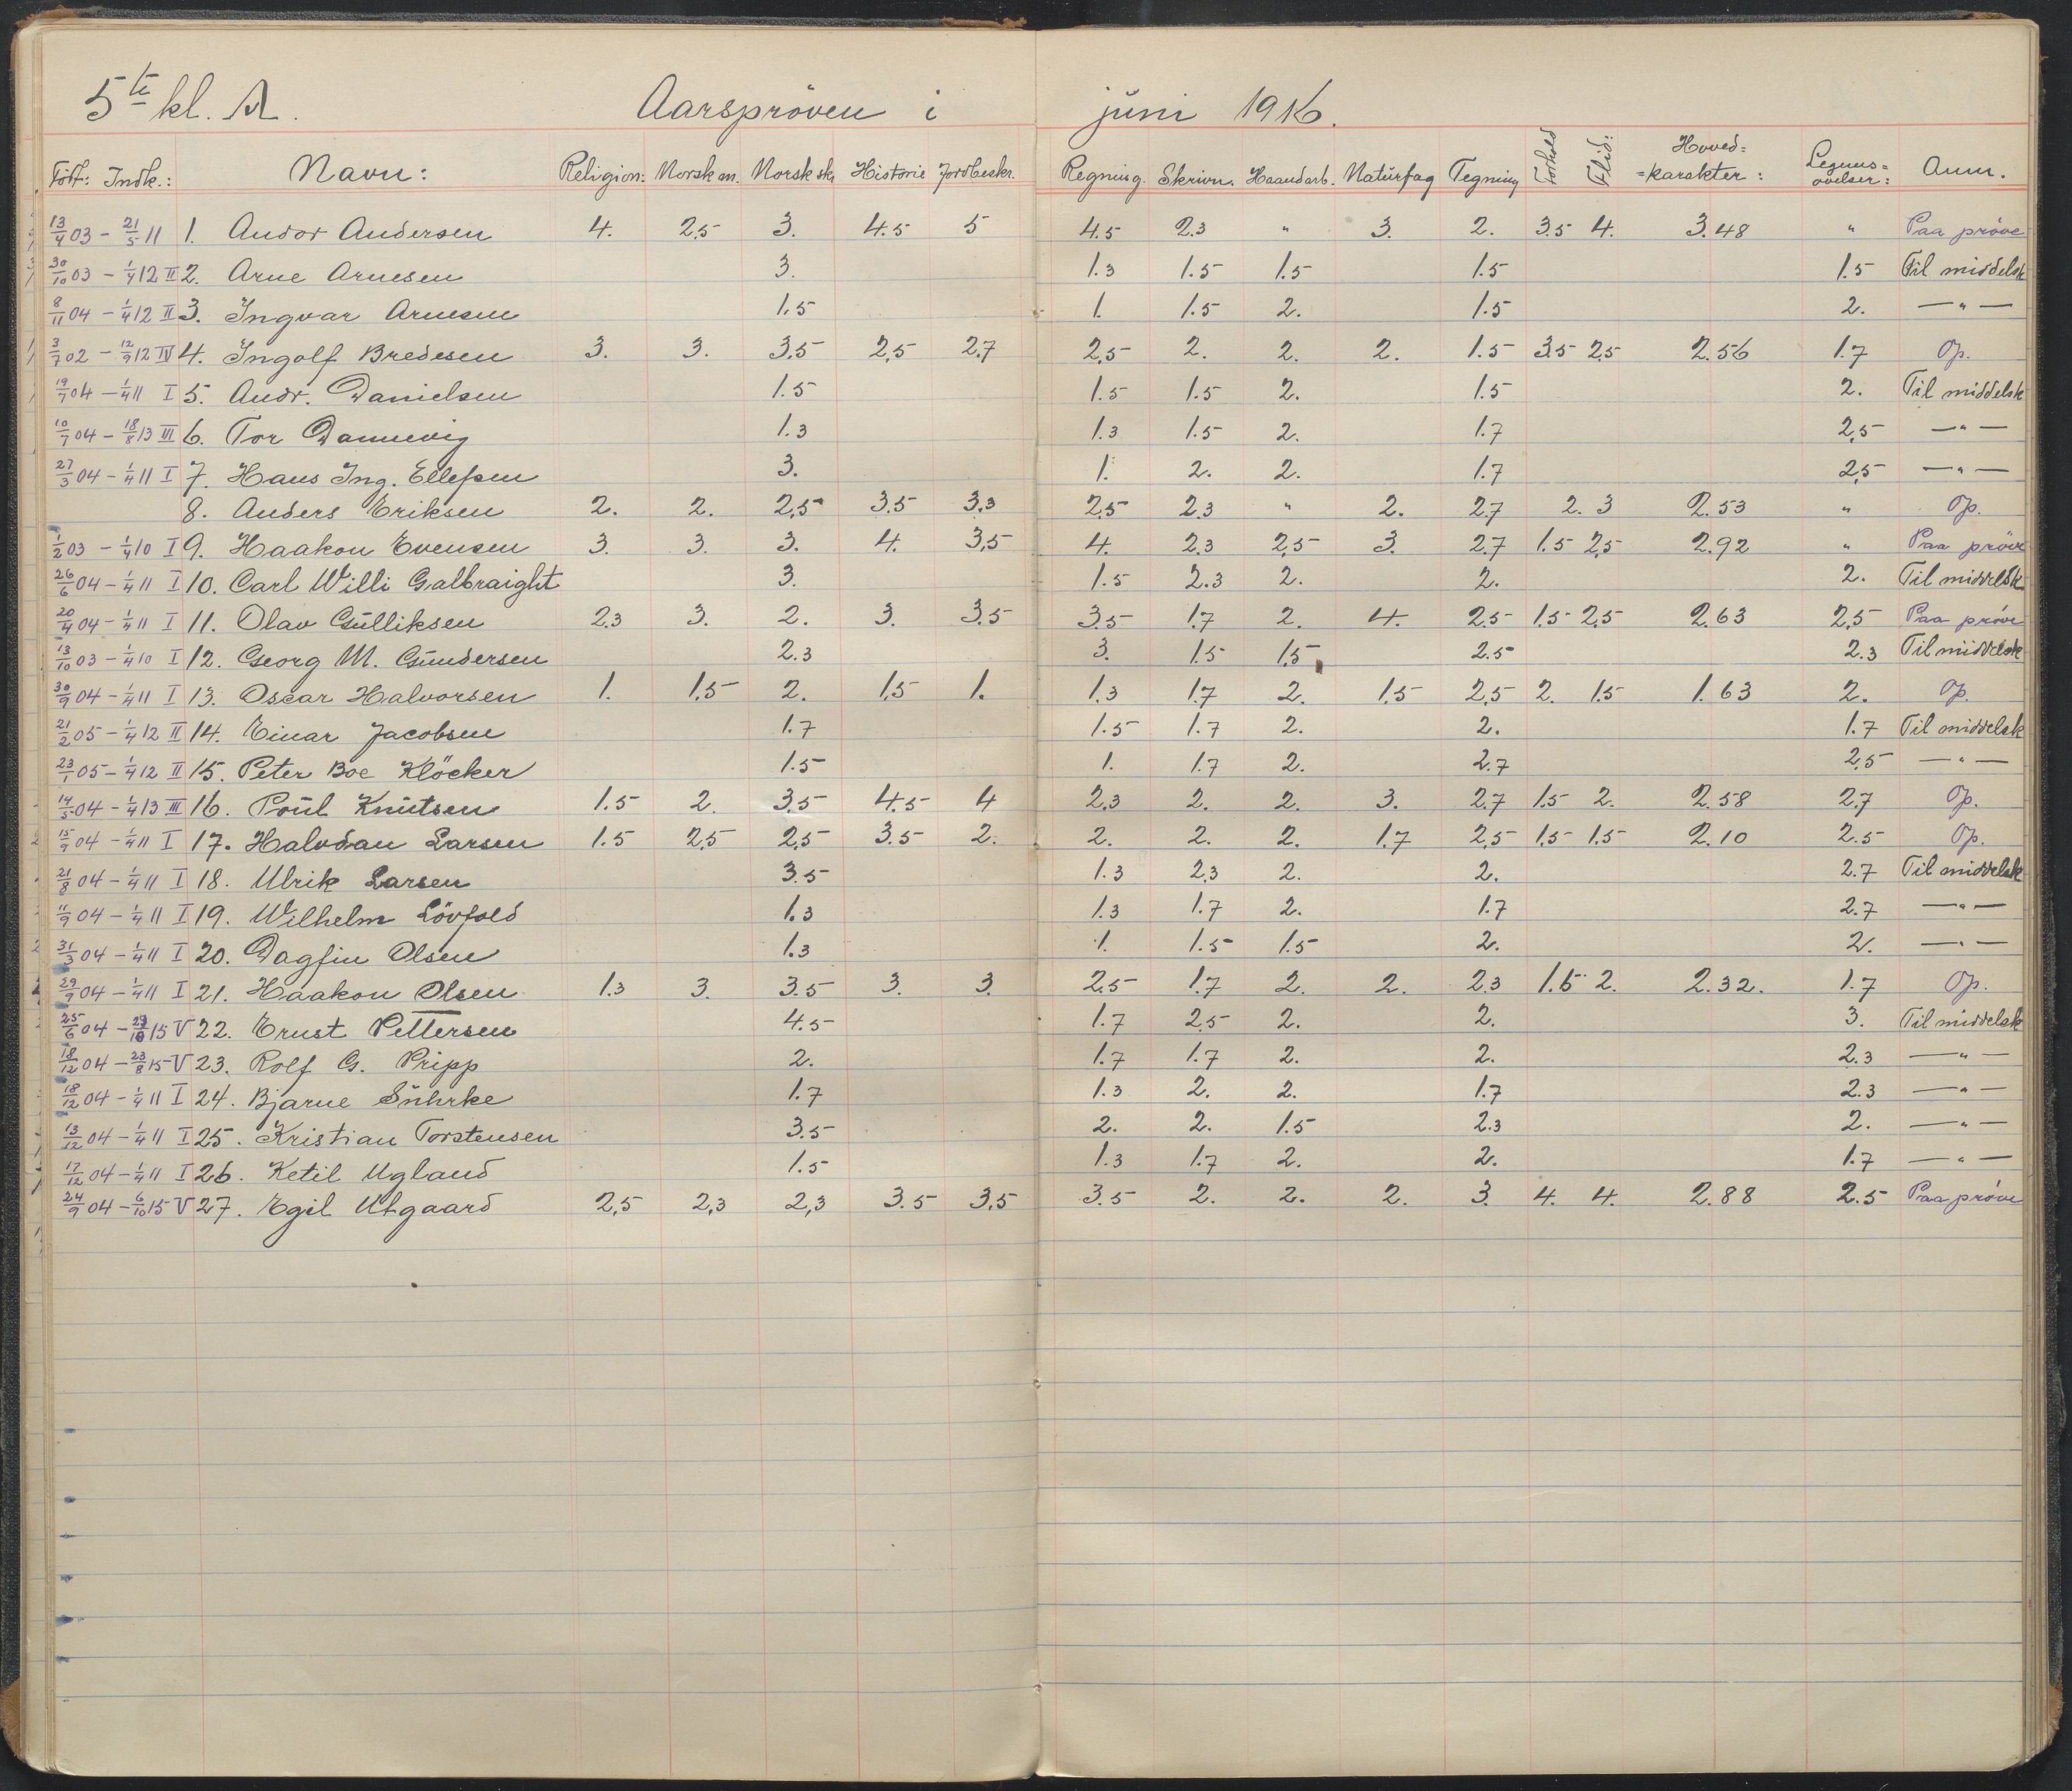 5te kl. A. Aarsprøven i juni 1916.
Født: Indk.: Navn: Religion: Norsk m. Norsk sk. Historie Jordbeskr. Regning. Skrivn. Haandarb. Naturfag Tegning Forhold Flid: Hoved= =karakter: Legems= øvelser: Anm.
13/4 03 - 21/5 11 1. Andor Andersen 4. 2,5 3. 4.5 5 4.5 2.3 " 3. 2. 3.5 4. 3.48 " Paa prøve
30/10 03 - 1/4 12 II 2. Arne Arnesen 3. 1.3 1.5 1.5 1.5 1.5 Til middelsk
8/11 04 - 1/4 12 II 3. Ingvar Arnesen 1,5 1. 1.5 2. 1.5 2. — " —
3/7 02 - 12/9 12 IV 4. Ingolf Bredesen 3. 3. 3.5 2,5 2.7 2,5 2. 2. 2. 1.5 3.5 2,5 2.56 1.7 Op.
19/7 04 - 1/4 11 I 5. Andr. Danielsen 1.5 1.5 1.5 2. 1.5 2. Til middelsk
10/7 04 - 18/8 13 III 6. Tor Dannevig 1.3 1.3 1.5 2. 1.7 2,5 — " —
27/3 04 - 1/4 11 I 7. Hans Ing. Ellefsen 3. 1. 2. 2. 1.7 2,5 — " —
8. Anders Eriksen 2. 2. 2,5 3.5 3,3 2,5 2.3 " 2. 2.7 2. 3 2.53 " Op.
1/2 03 - 1/4 10 I 9. Haakon Evensen 3. 3. 3. 4. 3,5 4. 2.3 2,5 3. 2.7 1.5 2,5 2.92 " Paa prøve
26/6 04 - 1/4 11 I 10. Carl Willi Galbraight 3. 1.5 2.3 2. 2. 2. Til middelsk
20/4 04 - 1/4 11 I 11. Olav Gulliksen 2.3 3. 2. 3. 3.5 3.5 1.7 2. 4. 2.5 1.5 2,5 2.63 2,5 Paa prøve
13/10 03 - 1/4 10 I 12. Georg M. Gundersen 2.3 3. 1.5 1,5 2.5 2.3 Til middelsk
30/9 04 - 1/4 11 I 13. Oscar Halvorsen 1. 1,5 2. 1,5 1. 1.3 1.7 2. 1.5 2,5 2. 1.5 1.63 2. Op.
21/2 05 - 1/4 12 II 14. Einar Jacobsen 1.7 1.5 1.7 2. 2. 1.7 Til middelsk
23/1 05 - 1/4 12 II 15. Peter Boe Klöcker 1.5 1. 1.7 2. 2.7 2,5 — " —
14/5 04 - 1/4 13 III 16. Poul Knutsen 1.5 2. 3,5 4.5 4 2.3 2. 2. 3. 2.7 1.5 2. 2.58 2.7 Op.
15/9 04 - 1/4 11 I 17. Halvdan Larsen 1.5 2,5 2,5 3.5 2. 2. 2. 2. 1.7 2,5 1,5 1.5 2.10 2.5 Op.
21/8 04 - 1/4 11 I 18. Ulrik Larsen 3.5 1.3 2,3 2. 2. 2.7 Til middelsk
11/9 04 - 1/4 11 I 19. Wilhelm Lövfold 1.3 1.3 1.7 2. 1.7 2.7 — " —
31/3 04 - 1/4 11 I 20. Dagfin Olsen 1.3 1. 1.5 1.5 2. 2. — " —
29/9 04 - 1/4 11 I 21. Haakon Olsen 1.3 3. 3.5 3. 3. 2.5 1.7 2. 2. 2.3 1.5 2. 2.32. 1.7 Op.
25/6 04 - 29/10 15 V 22. Ernst Pettersen 4.5 1.7 2.5 2. 2. 3. Til middelsk
18/12 04 - 23/8 15 V 23. Rolf G. Pripp 2. 1.7 1.7 2. 2. 2.3 — " —
18/12 04 - 1/4 11 I 24. Bjarne Suhrke 1.7 1.3 2. 2. 1.7 2.3 — " —
13/12 04 - 1/4 11 I 25. Kristian Torstensen 3.5 2. 2. 1.5 2.3 2. — " —
17/12 04 - 1/4 11 I 26. Ketil Ugland 1.5 1.3 1.7 2. 2. 1.7 — " —
24/9 04 - 6/10 15 V 27. Egil Utgaard 2,5 2,3 2,3 3.5 3,5 3.5 2. 2. 2. 3. 4. 4. 2.88 2.5 Paa prøve